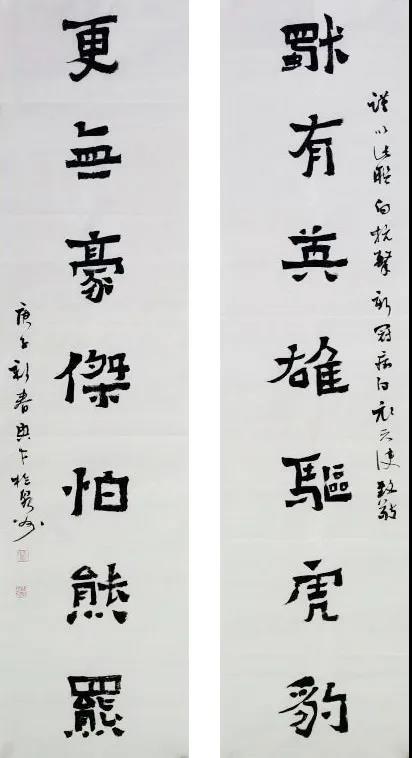 謹以此聯向抗擊新冠病白衣天使致敬
獨有英雄驅虎豹
更無豪傑怕熊羆
庚子新春於州